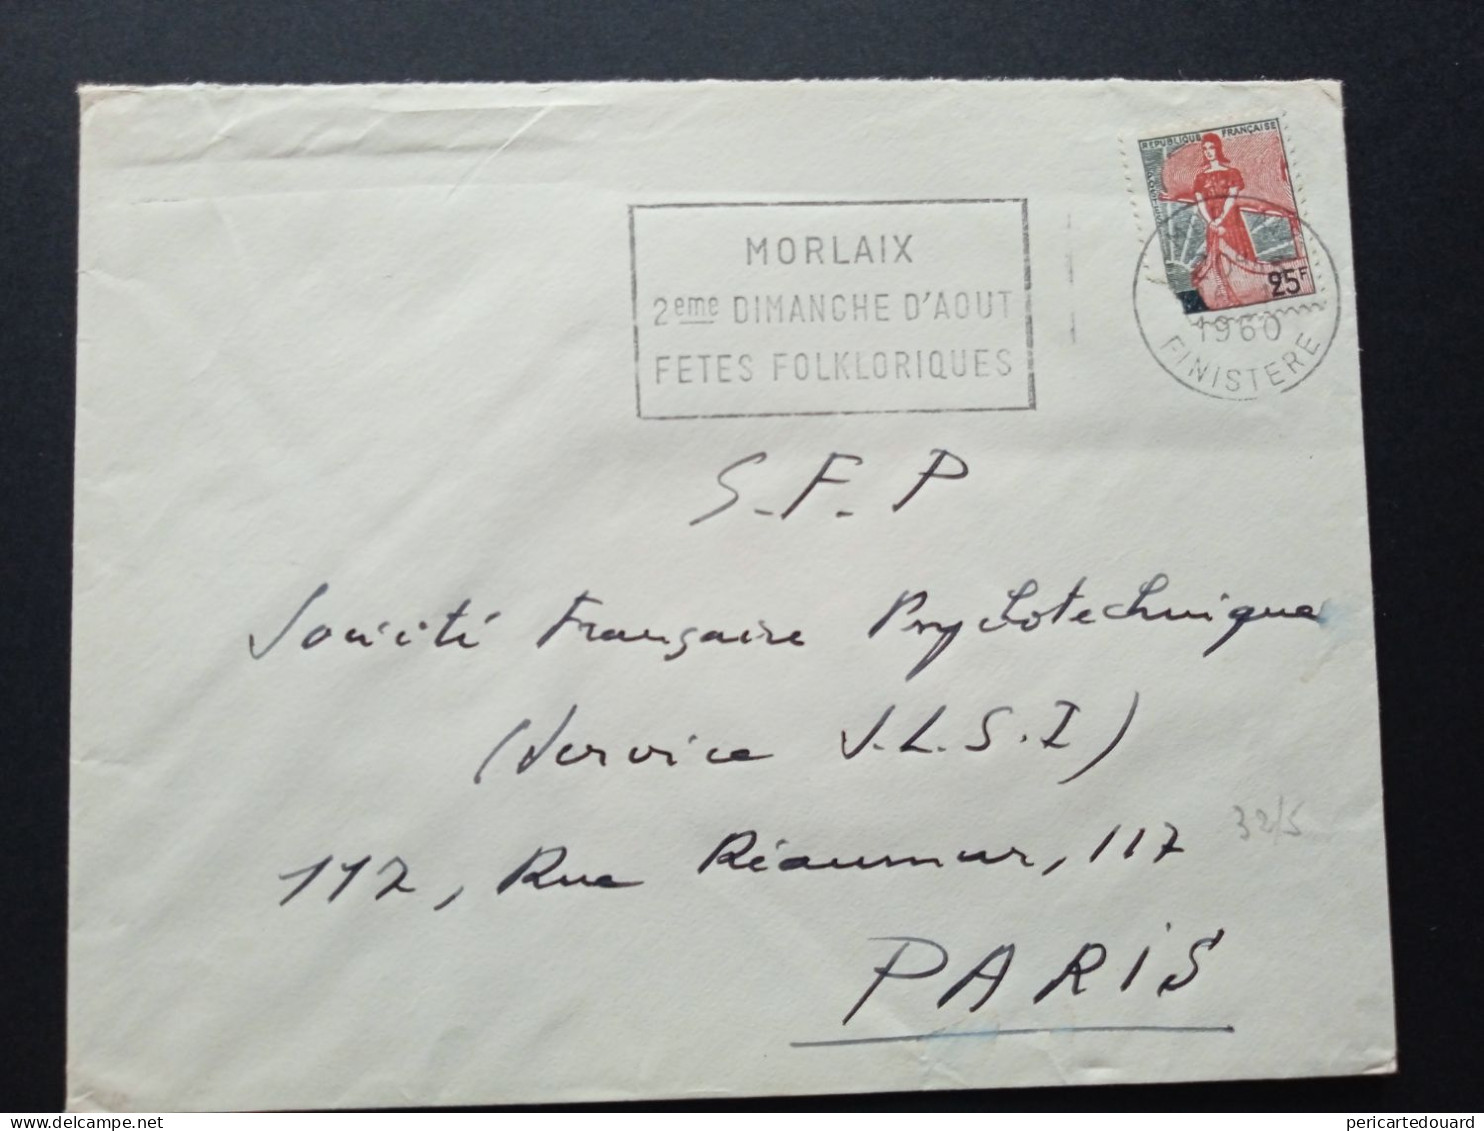 REPUBLIQUE FRANÇAISE
25F
1960
FINISTERE
MORLAIX
2eme DIMANCHE D'AOUT
FETES FOLKLORIQUES
S.F.P
Société Française Psychotechnique
(Service V.L.S.I)
112, Rue Réaumur, 117
32/5
PARIS
delcampe.net
pericartedouard